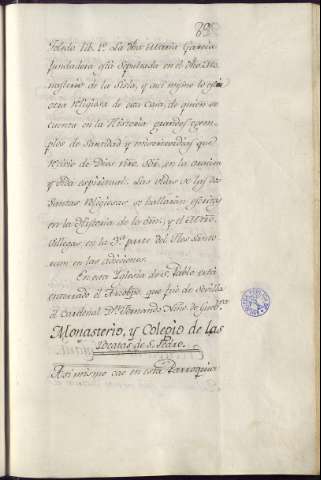 89
Toledo lib. 1º. La dha María García
fundadora está sepultada en el dho Mo-
nasterio de la Sisla, y así mismo lo está
otra religiosa de esta casa, de quien se
cuenta en la Historia grandes exem-
plos de Santidad y misericordias que
recivio de Dios ntro. Sor. en la oracion
y vida espiritual. Las vidas de las dos
Santas religiosas se hallarán escritas
en la Historia de la orn; y el Mtro.
Villegas, en la 3ª. parte del Flos Santo-
rum en las adiciones.
En esta Iglesia de S. Pablo está
enterrado el Arzobpo. que fué de Sevilla
el Cardenal Dn. Fernando Niño de Guebª.
Monasterio, y Colegio de las
Beatas de S. Pedro.
Asimismo cae en esta Parroquia